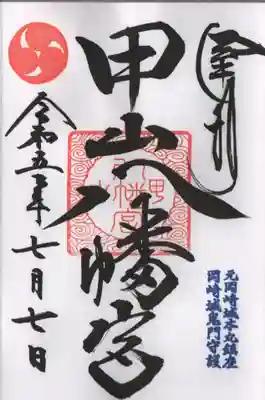 甲山八幡宮
甲山
八幡宮
元岡崎城本丸鎮座
岡崎城鬼門守護
令和五年七月七日